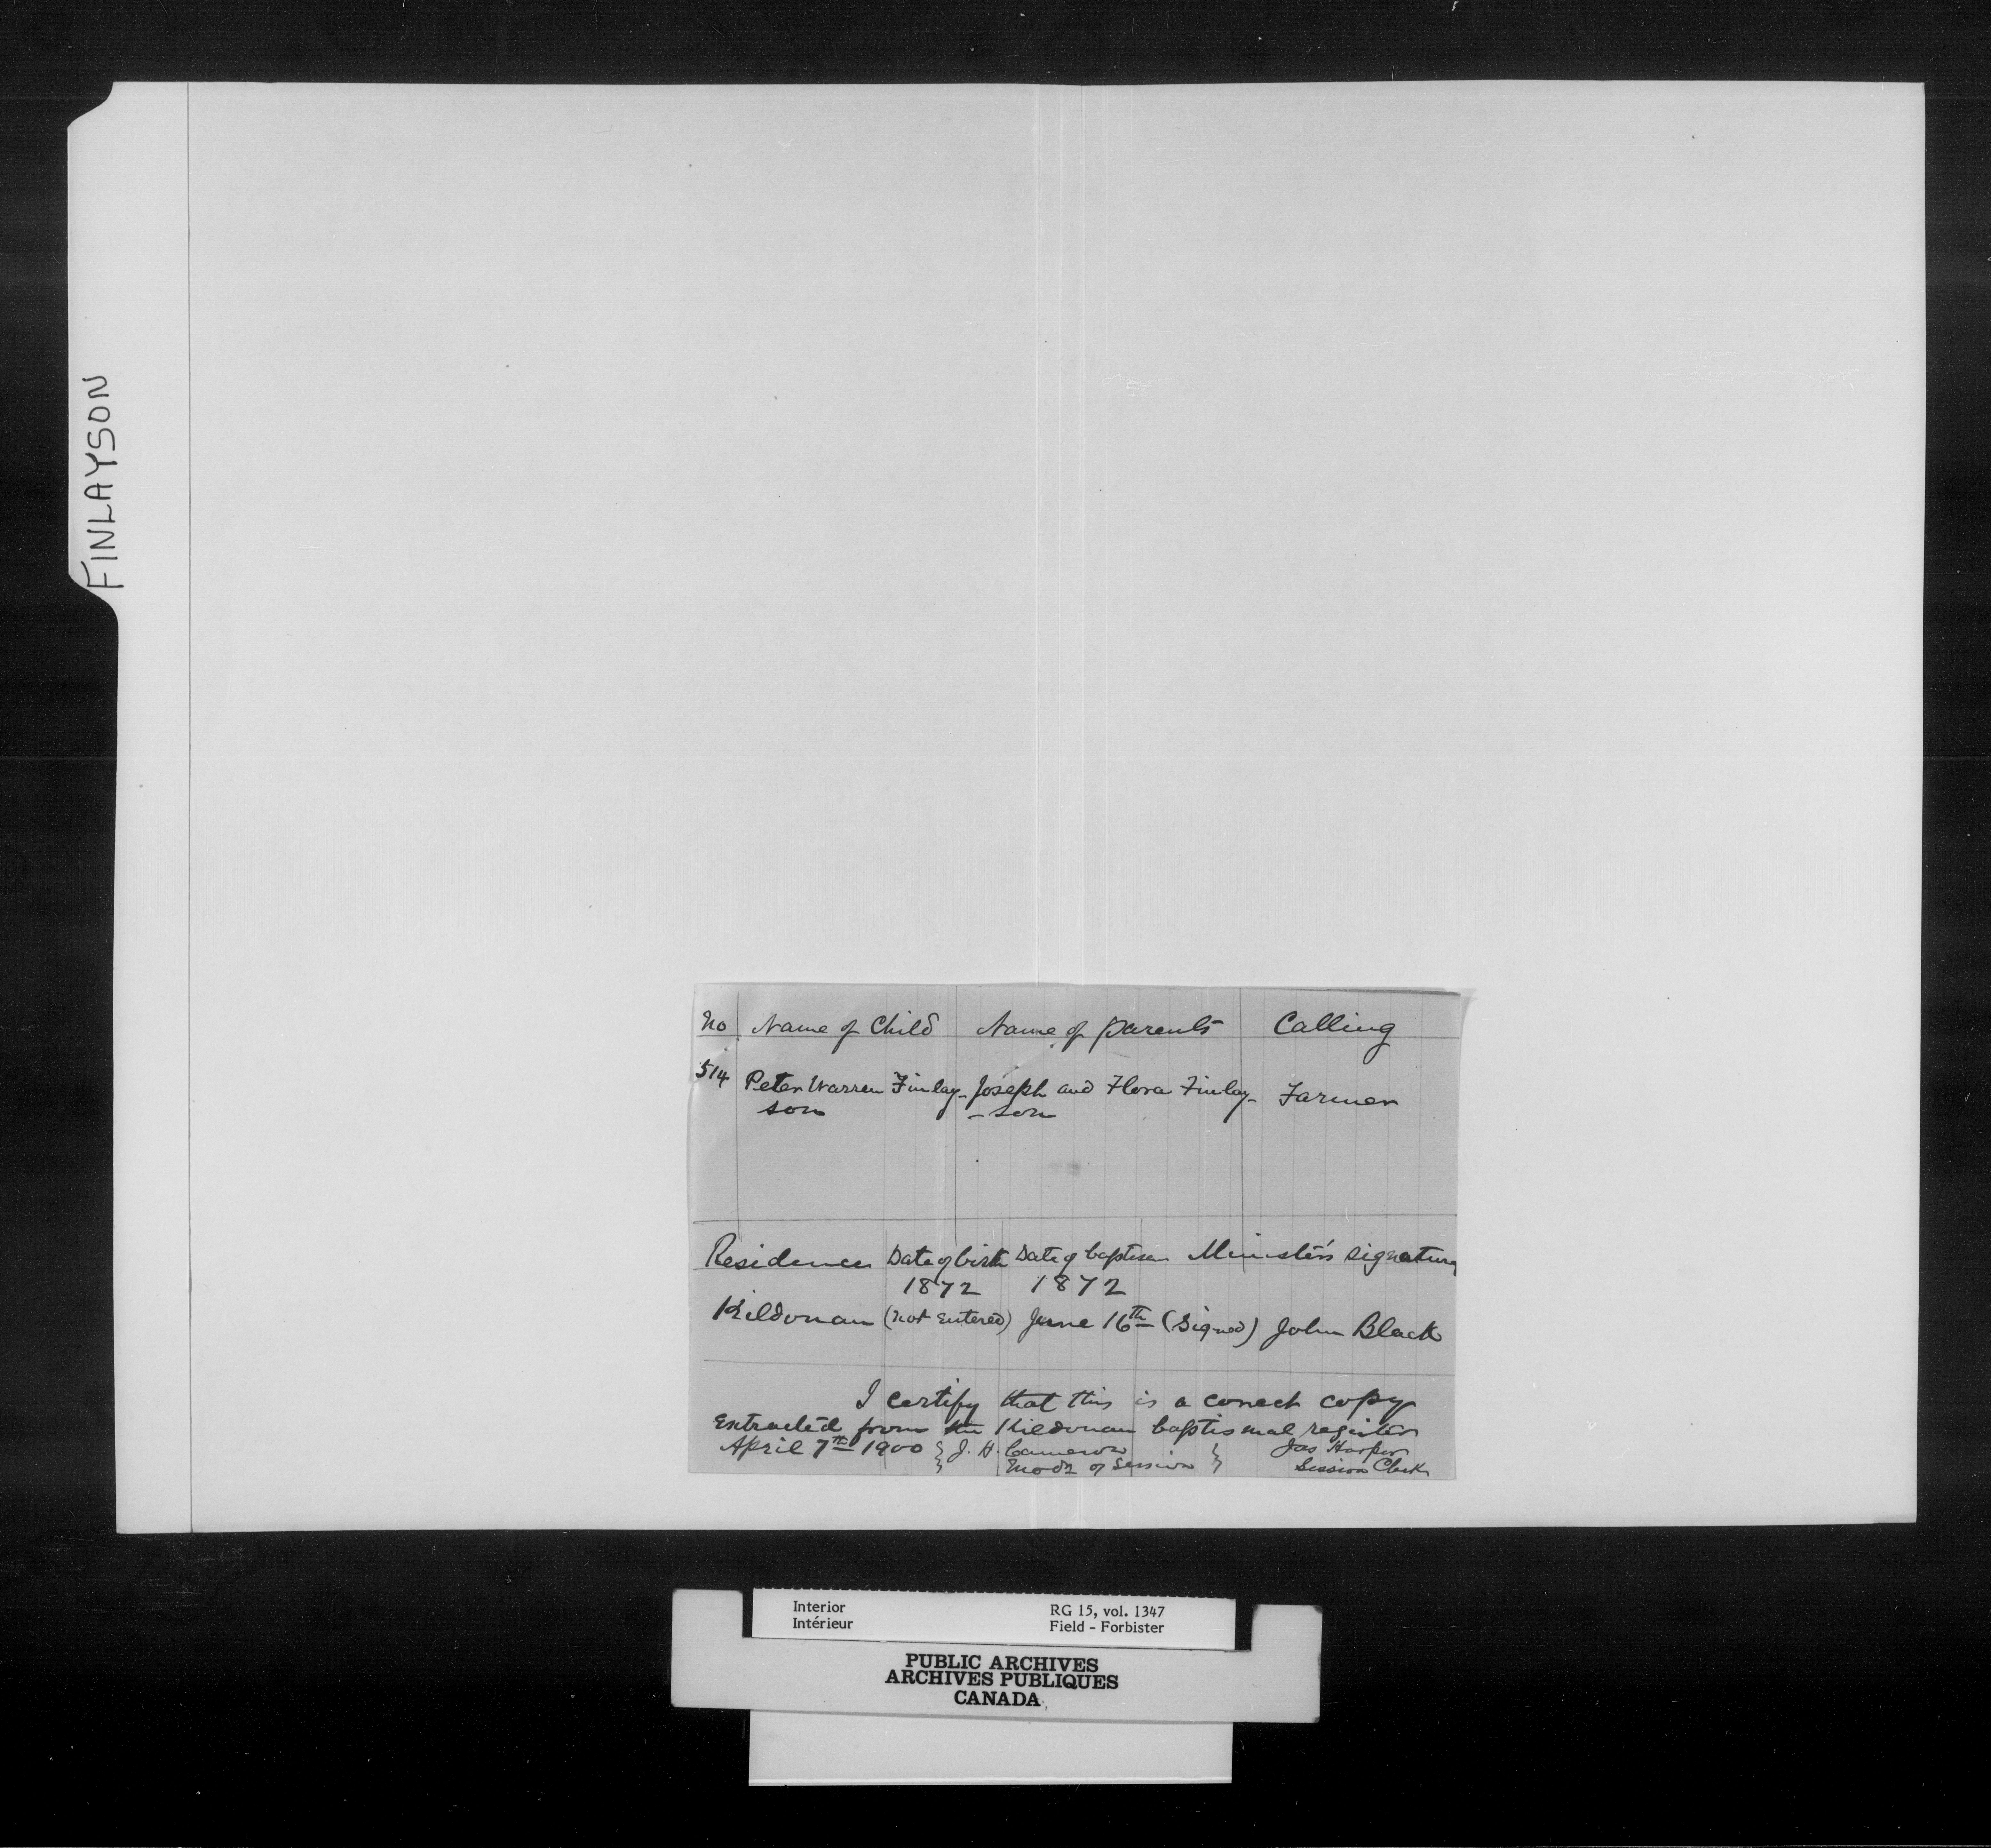 FINLAYSON
No Name of Child Name of parents Calling
514 Peter Warren Finlay- Joseph and Flora Finlay- Farmer
son -son
Residence Date of birth Date of baptism Minister's signature
1872 1872
Kildonan (not entered) June 16th (Signed) John Black
I certify that this is a correct copy
Extracted from the Kildonan baptismal register
April 7th 1900 } J. H. Cameron } Jas Harper
Modr of Session Session Clerk
Interior RG 15, vol. 1347
Intérieur Field - Forbister
PUBLIC ARCHIVES
ARCHIVES PUBLIQUES
CANADA